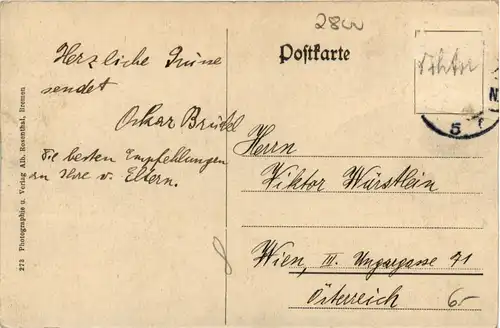 2800
Postkarte
Viktor
Herzliche Grüsse
sendet
Oskar Brückl
Die besten Empfehlungen
an Ihre v. Eltern.
Herrn
Viktor Würstlein
Wien, III. Ungargasse 71
Österreich
6-
8
5
N
273 Photographie u. Verlag Alb. Rosenthal, Bremen